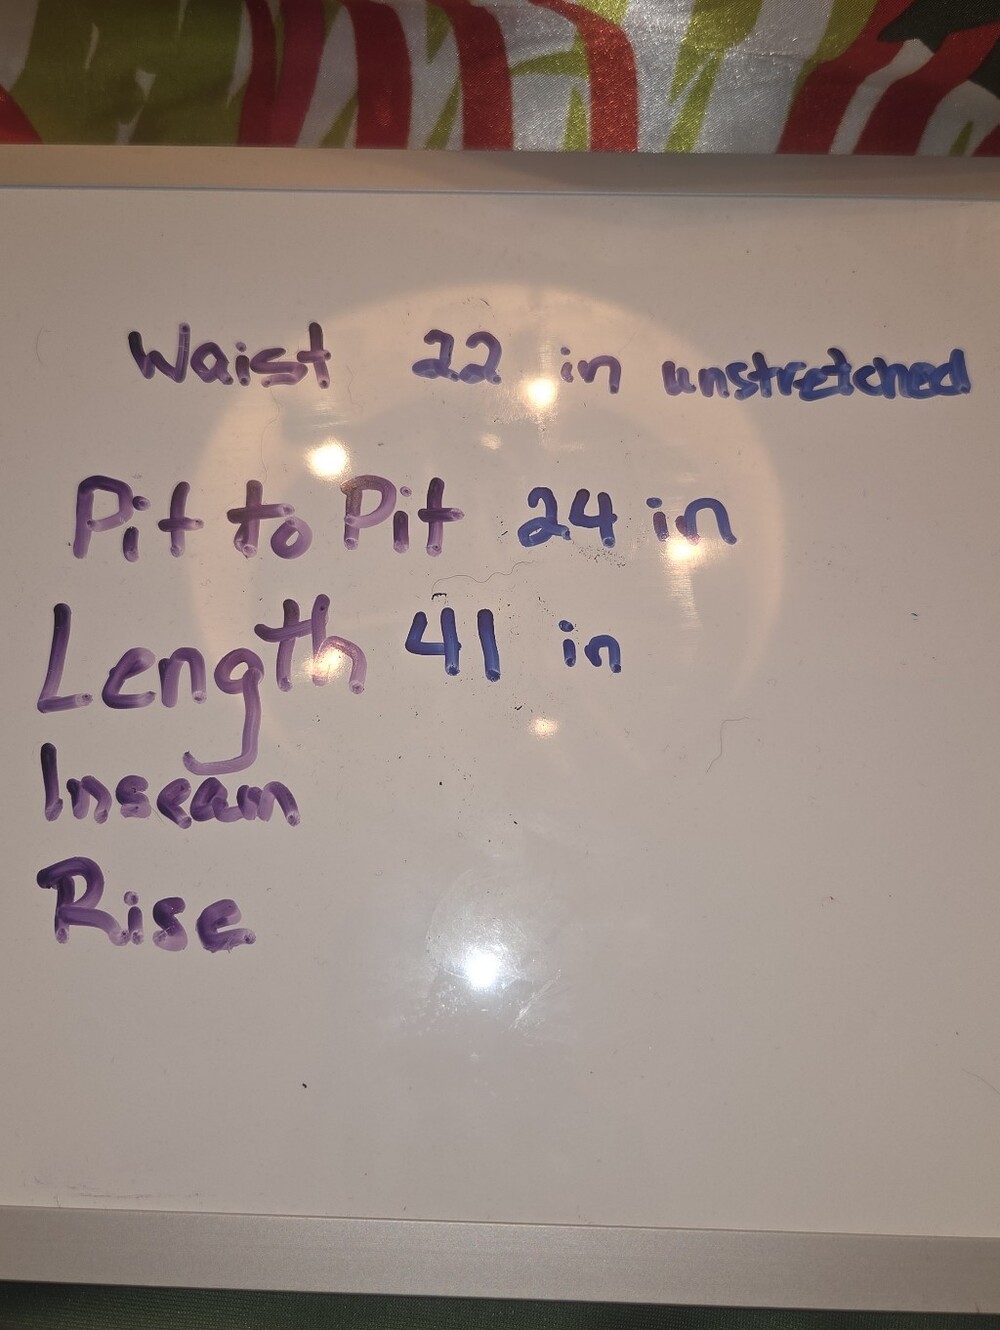 Waist 22 in unstretched
Pit to Pit 24 in
Length 41 in
Inseam
Rise